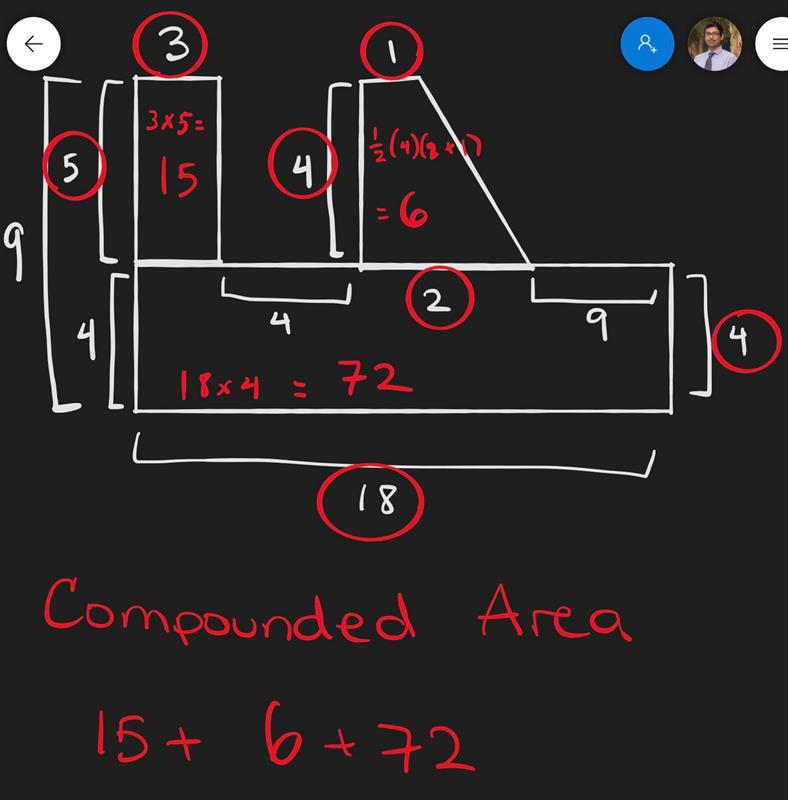 3
1
3x5=
15
5
4
½(4)(2+1)
= 6
9
4
4
2
9
4
18x4 = 72
18
Compounded Area
15+ 6+72